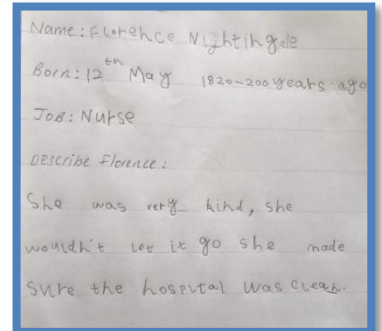 Name: Florence Nightingale
Born: 12th May 1820-200 years ago
Job: Nurse
Describe Florence:
She was very kind, she
wouldn't let it go she made
sure the hospital was clean.